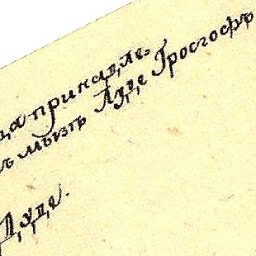 ца принадле-
ъ мызѣ Луде Гросгофъ
Луде.